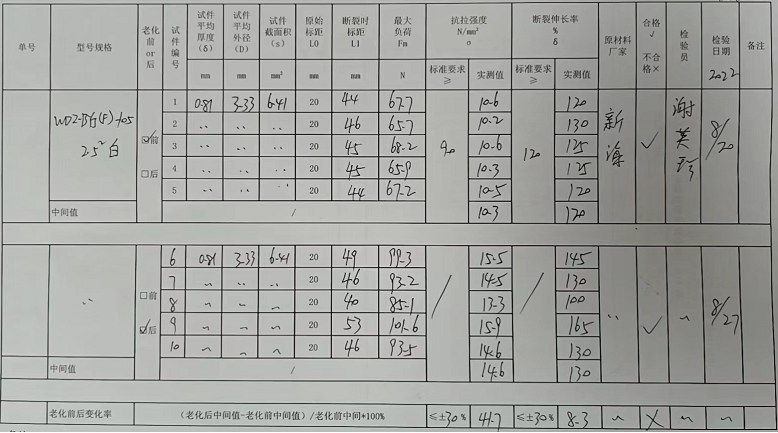 单号 型号规格 老化前or后 试件编号 试件平均厚度(δ) mm 试件平均外径(D) mm 试件截面积(s) mm² 原始标距L0 mm 断裂时标距L1 mm 最大负荷Fm N 抗拉强度 N/mm² σ 标准要求≥ 实测值 断裂伸长率 % δ 标准要求≥ 实测值 原材料厂家 合格√ 不合格× 检验员 检验日期 2022 备注
1 0.81 3.33 6.41 20 44 67.7 10.6 120
2 〃 〃 〃 20 46 65.7 10.2 130
2.5² 白 ☑前 3 〃 〃 〃 20 45 68.2 90 10.6 120 125 新海 √ 谢芙珍 8/20
□后 4 〃 〃 〃 20 45 65.9 10.3 125
5 〃 〃 〃 20 44 67.2 10.5 120
中间值 / 10.3 120
6 0.81 3.33 6.41 20 49 99.3 / 15.5 / 145
7 〃 〃 〃 20 46 93.2 14.5 130
〃 □前 8 ~ ~ ~ 20 40 85.1 13.3 100 〃 √ ~ 8/27
☑后 9 ~ ~ ~ 20 53 101.6 15.9 165
10 ~ ~ ~ 20 46 93.5 14.6 130
中间值 / 14.6 130
老化前后变化率 (老化后中间值-老化前中间值)/老化前中间*100% ≤±30% 41.7 ≤±30% 8.3 ~ × ~ ~